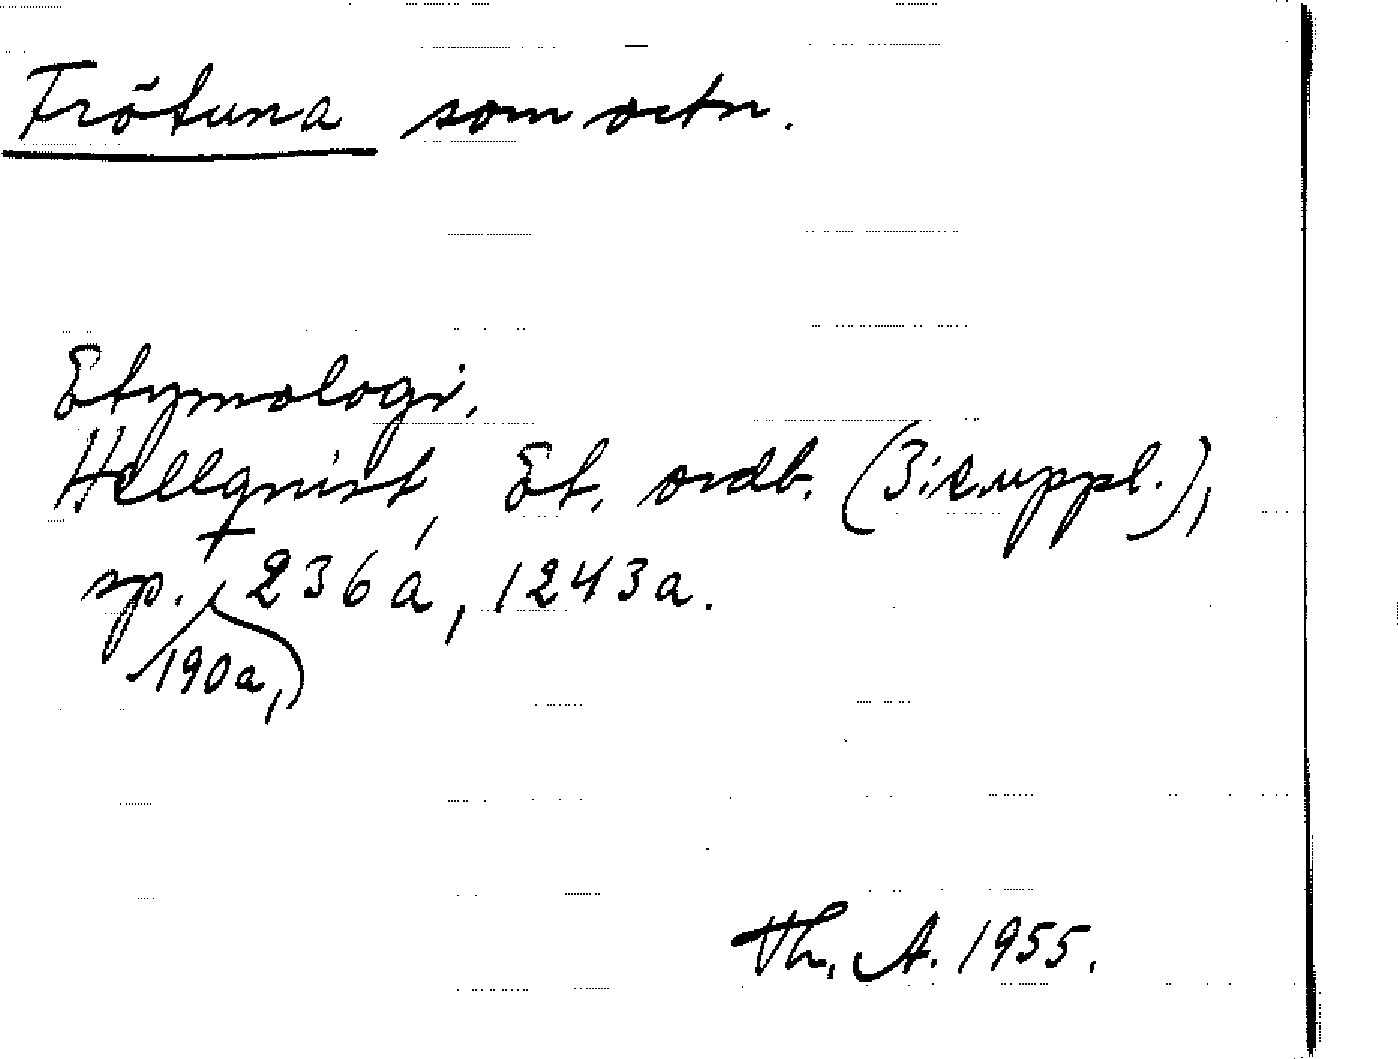 Frötuna som ortn.
Etymologi.
Hellquist, Et. ordb. (3:e uppl.),
sp. 190a, 236a, 1243a.
Th. A. 1955.